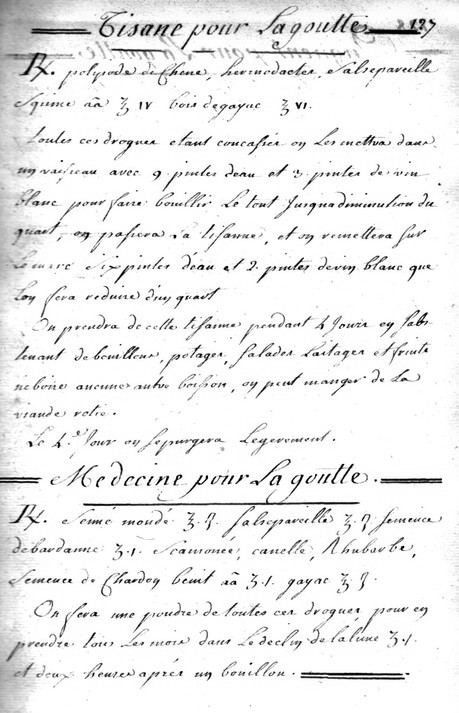 Tisane pour Lagoutte 127
℞. polypode de Chene, hermodacte, Salsepareille
Squine aā ℥ IV bois de gayac ℥ VI.
toutes ces drogues etant concassées on Les mettra dans
un vaisseau avec 9 pintes deau et 3 pintes de vin
blanc pour faire bouillir Le tout Jusqua diminution du
quart, on passera La tisanne, et on remettera sur
Le marc six pintes deau et 2 pintes de vin blanc que
Lon fera reduire d'un quart
On prendra de cette tisanne pendant 4 Jours en sabs
tenant de bouillons, potages, Salades Laitages et fruits
ne boire aucune autre boisson, on peut manger de La
viande rotie.
Le 4e Jour on se purgera Legerement.
Medecine pour La goutte.
℞. Sené mondé ℥.ʒ salsepareille ℥.ʒ semence
de bardanne ʒ.1. Scamonée, canelle, Rhubarbe,
Semence de Chardon benit aā ʒ.1. gayac ℥ ʒ
On fera une poudre de toutes ces drogues pour en
prendre tous Les mois dans Le declin de la lune ʒ.1.
et deux heures aprés un bouillon.